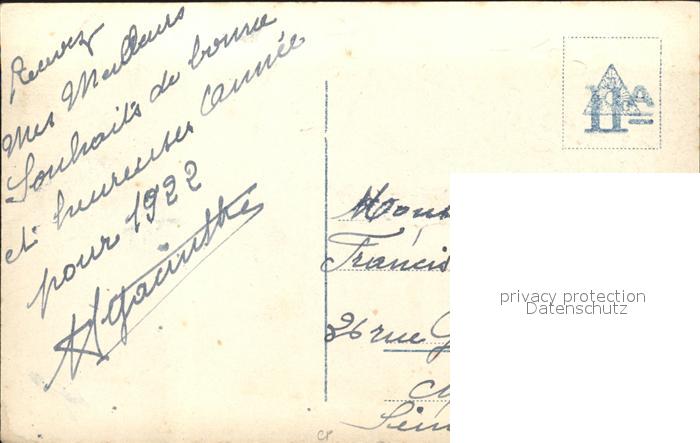 Recevez
Mes Meilleurs
Souhaits de bonne
et heureuses année
pour 1922
Hyacinthe
Francis
26 rue
privacy protection
Datenschutz